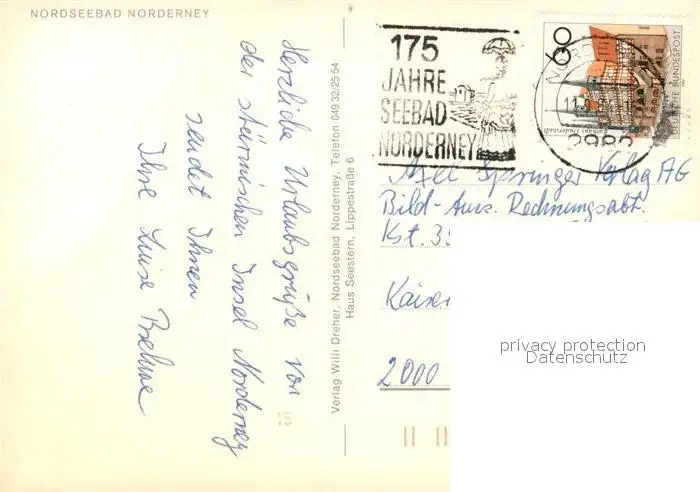 NORDSEEBAD NORDERNEY
Herzliche Urlaubsgrüße von
der stürmischen Insel Norderney
sendet Ihnen
Ihre Luise
Verlag Willi Dreher, Nordseebad Norderney, Telefon 04932/2554
Haus Seestern, Lippestraße 6
175
JAHRE
SEEBAD
NORDERNEY
60
BUNDESPOST
Axel Springer Verlag AG
Bild-Ausg. Rechnungsabt.
Kst. 35
Kaiser
2000
privacy protection
Datenschutz